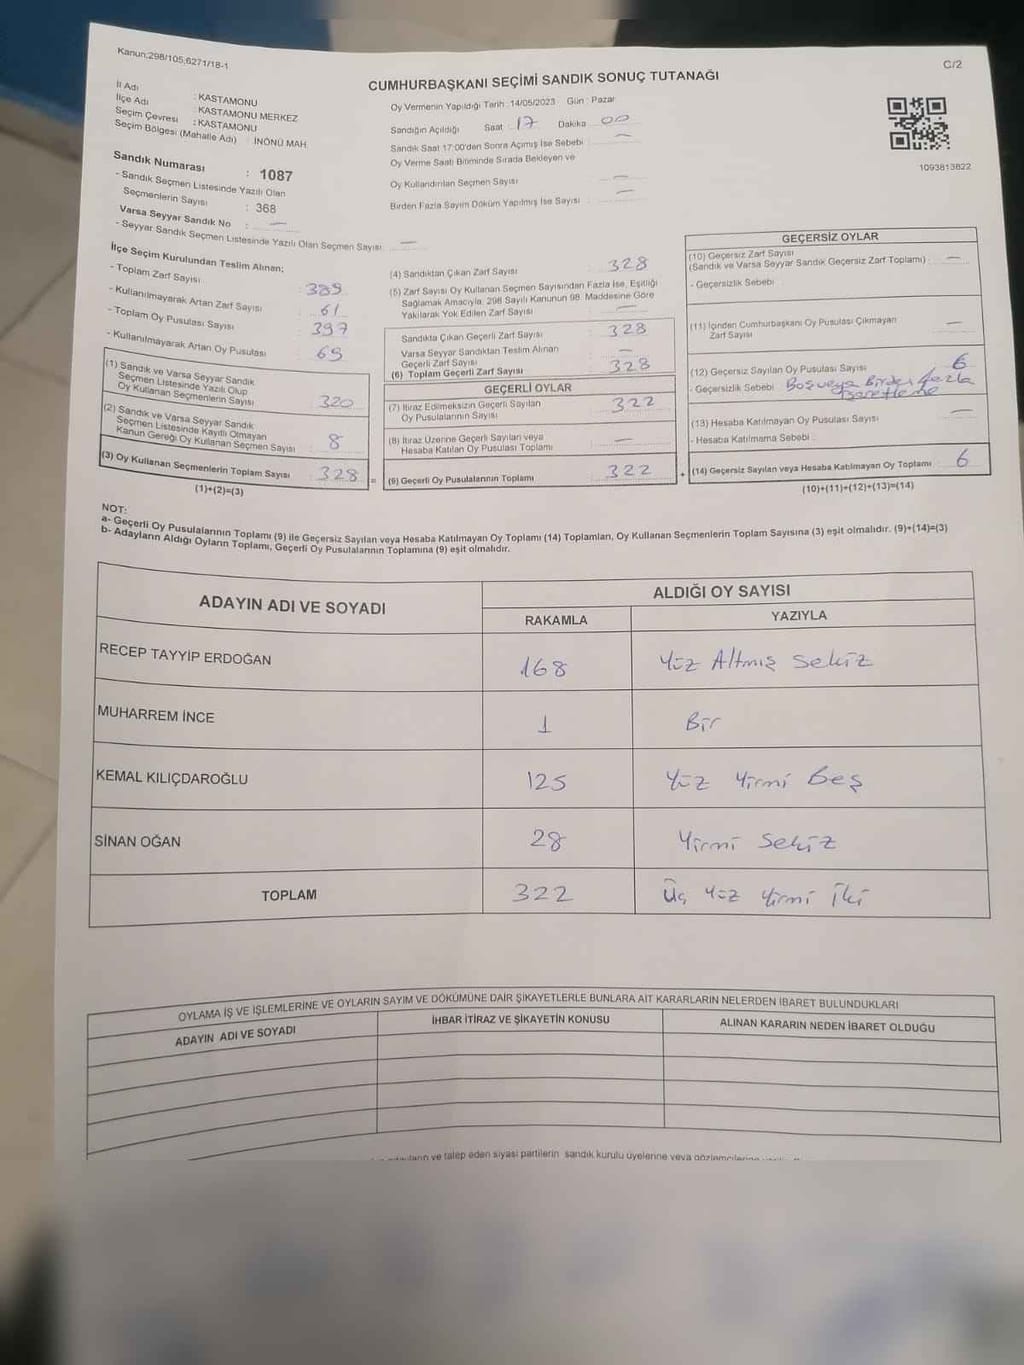 Kanun:298/105,6271/18-1
C/2
CUMHURBAŞKANI SEÇİMİ SANDIK SONUÇ TUTANAĞI
İl Adı : KASTAMONU
İlçe Adı : KASTAMONU MERKEZ
Seçim Çevresi : KASTAMONU
Seçim Bölgesi (Mahalle Adı) : İNÖNÜ MAH
Sandık Numarası : 1087
- Sandık Seçmen Listesinde Yazılı Olan
Seçmenlerin Sayısı : 368
Varsa Seyyar Sandık No : —
- Seyyar Sandık Seçmen Listesinde Yazılı Olan Seçmen Sayısı —
Oy Vermenin Yapıldığı Tarih : 14/05/2023 Gün : Pazar
Sandığın Açıldığı Saat 17 Dakika 00
Sandık Saat 17:00'den Sonra Açılmış İse Sebebi : —
Oy Verme Saati Bitiminde Sırada Bekleyen ve
Oy Kullandırılan Seçmen Sayısı : —
Birden Fazla Sayım Döküm Yapılmış İse Sayısı : —
1093813822
İlçe Seçim Kurulundan Teslim Alınan;
- Toplam Zarf Sayısı : 389
- Kullanılmayarak Artan Zarf Sayısı : 61
- Toplam Oy Pusulası Sayısı : 397
- Kullanılmayarak Artan Oy Pusulası : 69
(1) Sandık ve Varsa Seyyar Sandık
Seçmen Listesinde Yazılı Olup
Oy Kullanan Seçmenlerin Sayısı : 320
(2) Sandık ve Varsa Seyyar Sandık
Seçmen Listesinde Kayıtlı Olmayan
Kanun Gereği Oy Kullanan Seçmen Sayısı : 8
(3) Oy Kullanan Seçmenlerin Toplam Sayısı 328 =
(1)+(2)=(3)
(4) Sandıktan Çıkan Zarf Sayısı : 328
(5) Zarf Sayısı Oy Kullanan Seçmen Sayısından Fazla İse, Eşitliği
Sağlamak Amacıyla, 298 Sayılı Kanunun 98. Maddesine Göre
Yakılarak Yok Edilen Zarf Sayısı : —
Sandıkta Çıkan Geçerli Zarf Sayısı : 328
Varsa Seyyar Sandıktan Teslim Alınan
Geçerli Zarf Sayısı : —
(6) Toplam Geçerli Zarf Sayısı : 328
GEÇERLİ OYLAR
(7) İtiraz Edilmeksizin Geçerli Sayılan
Oy Pusulalarının Sayısı : 322
(8) İtiraz Üzerine Geçerli Sayılan veya
Hesaba Katılan Oy Pusulası Toplamı : —
(9) Geçerli Oy Pusulalarının Toplamı : 322 +
GEÇERSİZ OYLAR
(10) Geçersiz Zarf Sayısı
(Sandık ve Varsa Seyyar Sandık Geçersiz Zarf Toplamı) : —
- Geçersizlik Sebebi :
(11) İçinden Cumhurbaşkanı Oy Pusulası Çıkmayan
Zarf Sayısı : —
(12) Geçersiz Sayılan Oy Pusulası Sayısı : 6
- Geçersizlik Sebebi : Boş veya Birden fazla
işaretleme
(13) Hesaba Katılmayan Oy Pusulası Sayısı : —
- Hesaba Katılmama Sebebi :
(14) Geçersiz Sayılan veya Hesaba Katılmayan Oy Toplamı : 6
(10)+(11)+(12)+(13)=(14)
NOT:
a- Geçerli Oy Pusulalarının Toplamı (9) ile Geçersiz Sayılan veya Hesaba Katılmayan Oy Toplamı (14) Toplamları, Oy Kullanan Seçmenlerin Toplam Sayısına (3) eşit olmalıdır. (9)+(14)=(3)
b- Adayların Aldığı Oyların Toplamı, Geçerli Oy Pusulalarının Toplamına (9) eşit olmalıdır.
ADAYIN ADI VE SOYADI
ALDIĞI OY SAYISI
RAKAMLA YAZIYLA
RECEP TAYYİP ERDOĞAN 168 Yüz Altmış sekiz
MUHARREM İNCE 1 Bir
KEMAL KILIÇDAROĞLU 125 Yüz Yirmi Beş
SİNAN OĞAN 28 Yirmi Sekiz
TOPLAM 322 Üç Yüz Yirmi İki
OYLAMA İŞ VE İŞLEMLERİNE VE OYLARIN SAYIM VE DÖKÜMÜNE DAİR ŞİKAYETLERLE BUNLARA AİT KARARLARIN NELERDEN İBARET BULUNDUKLARI
ADAYIN ADI VE SOYADI İHBAR İTİRAZ VE ŞİKAYETİN KONUSU ALINAN KARARIN NEDEN İBARET OLDUĞU
ve talep eden siyasi partilerin sandık kurulu üyelerine veya